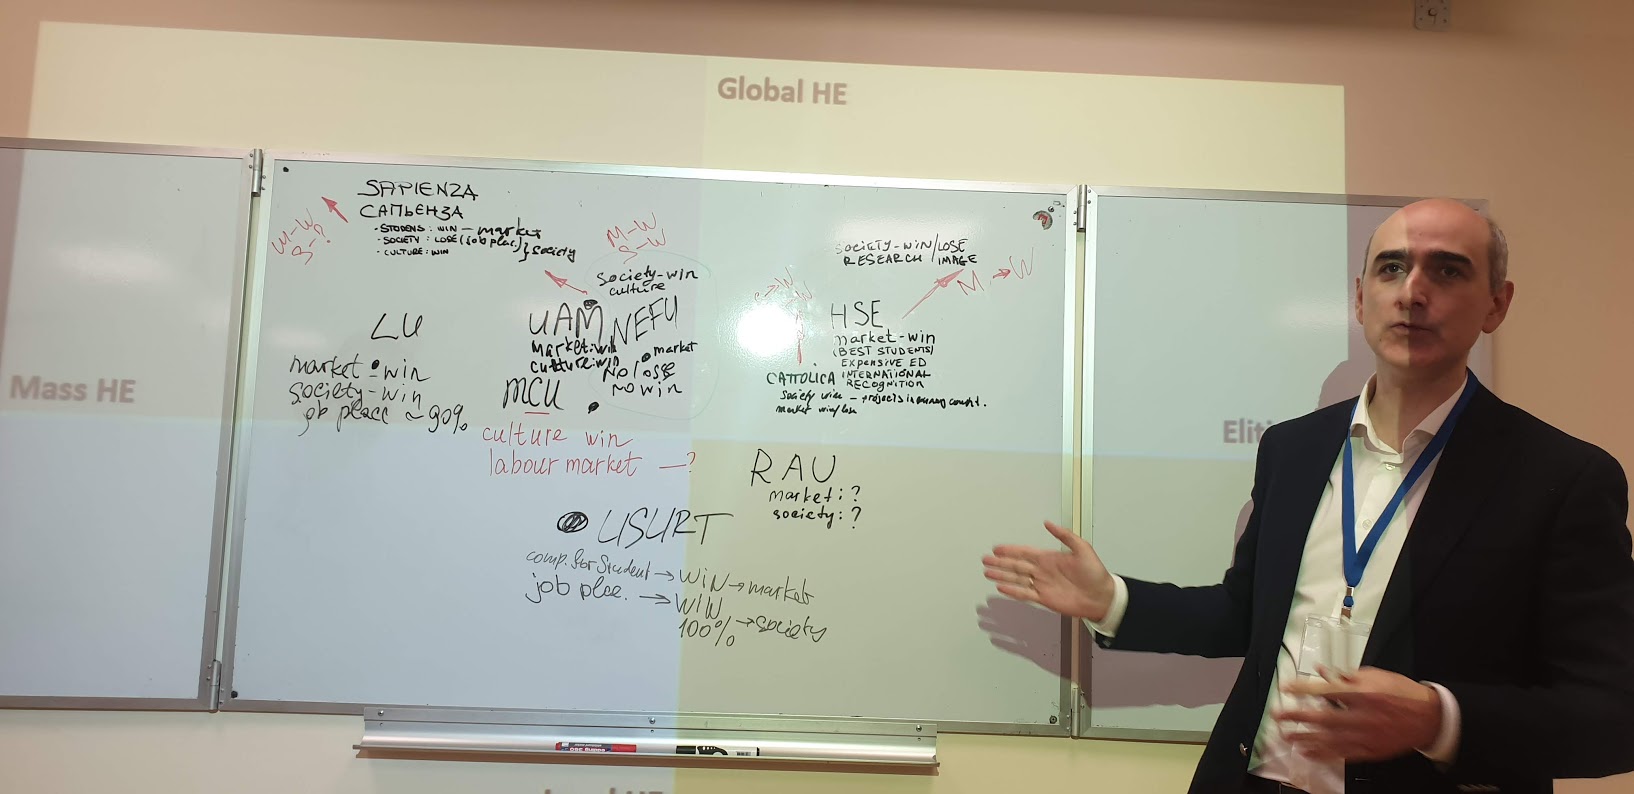 Global HE
Mass HE
SAPIENZA
САПЬЕНЗА
- STUDENS: WIN — market
- SOCIETY: LOSE (job plac.) } society
- CULTURE: WIN
M-W
S-?
M-W
S-W
society-win
culture
SOCIETY-WIN/LOSE
RESEARCH / IMAGE
M → W
LU
market • win
society-win
job place ~ 90%
UAM
market: win
culture: win
NEFU
• market
No lose
no win
MCU
culture win
labour market —?
HSE
market-win
(BEST STUDENTS)
EXPENSIVE ED
INTERNATIONAL
RECOGNITION
CATTOLICA
market win/lose
RAU
market: ?
society: ?
USURT
comp. for Student → WIN → market
job plac. → WIN
100% → society